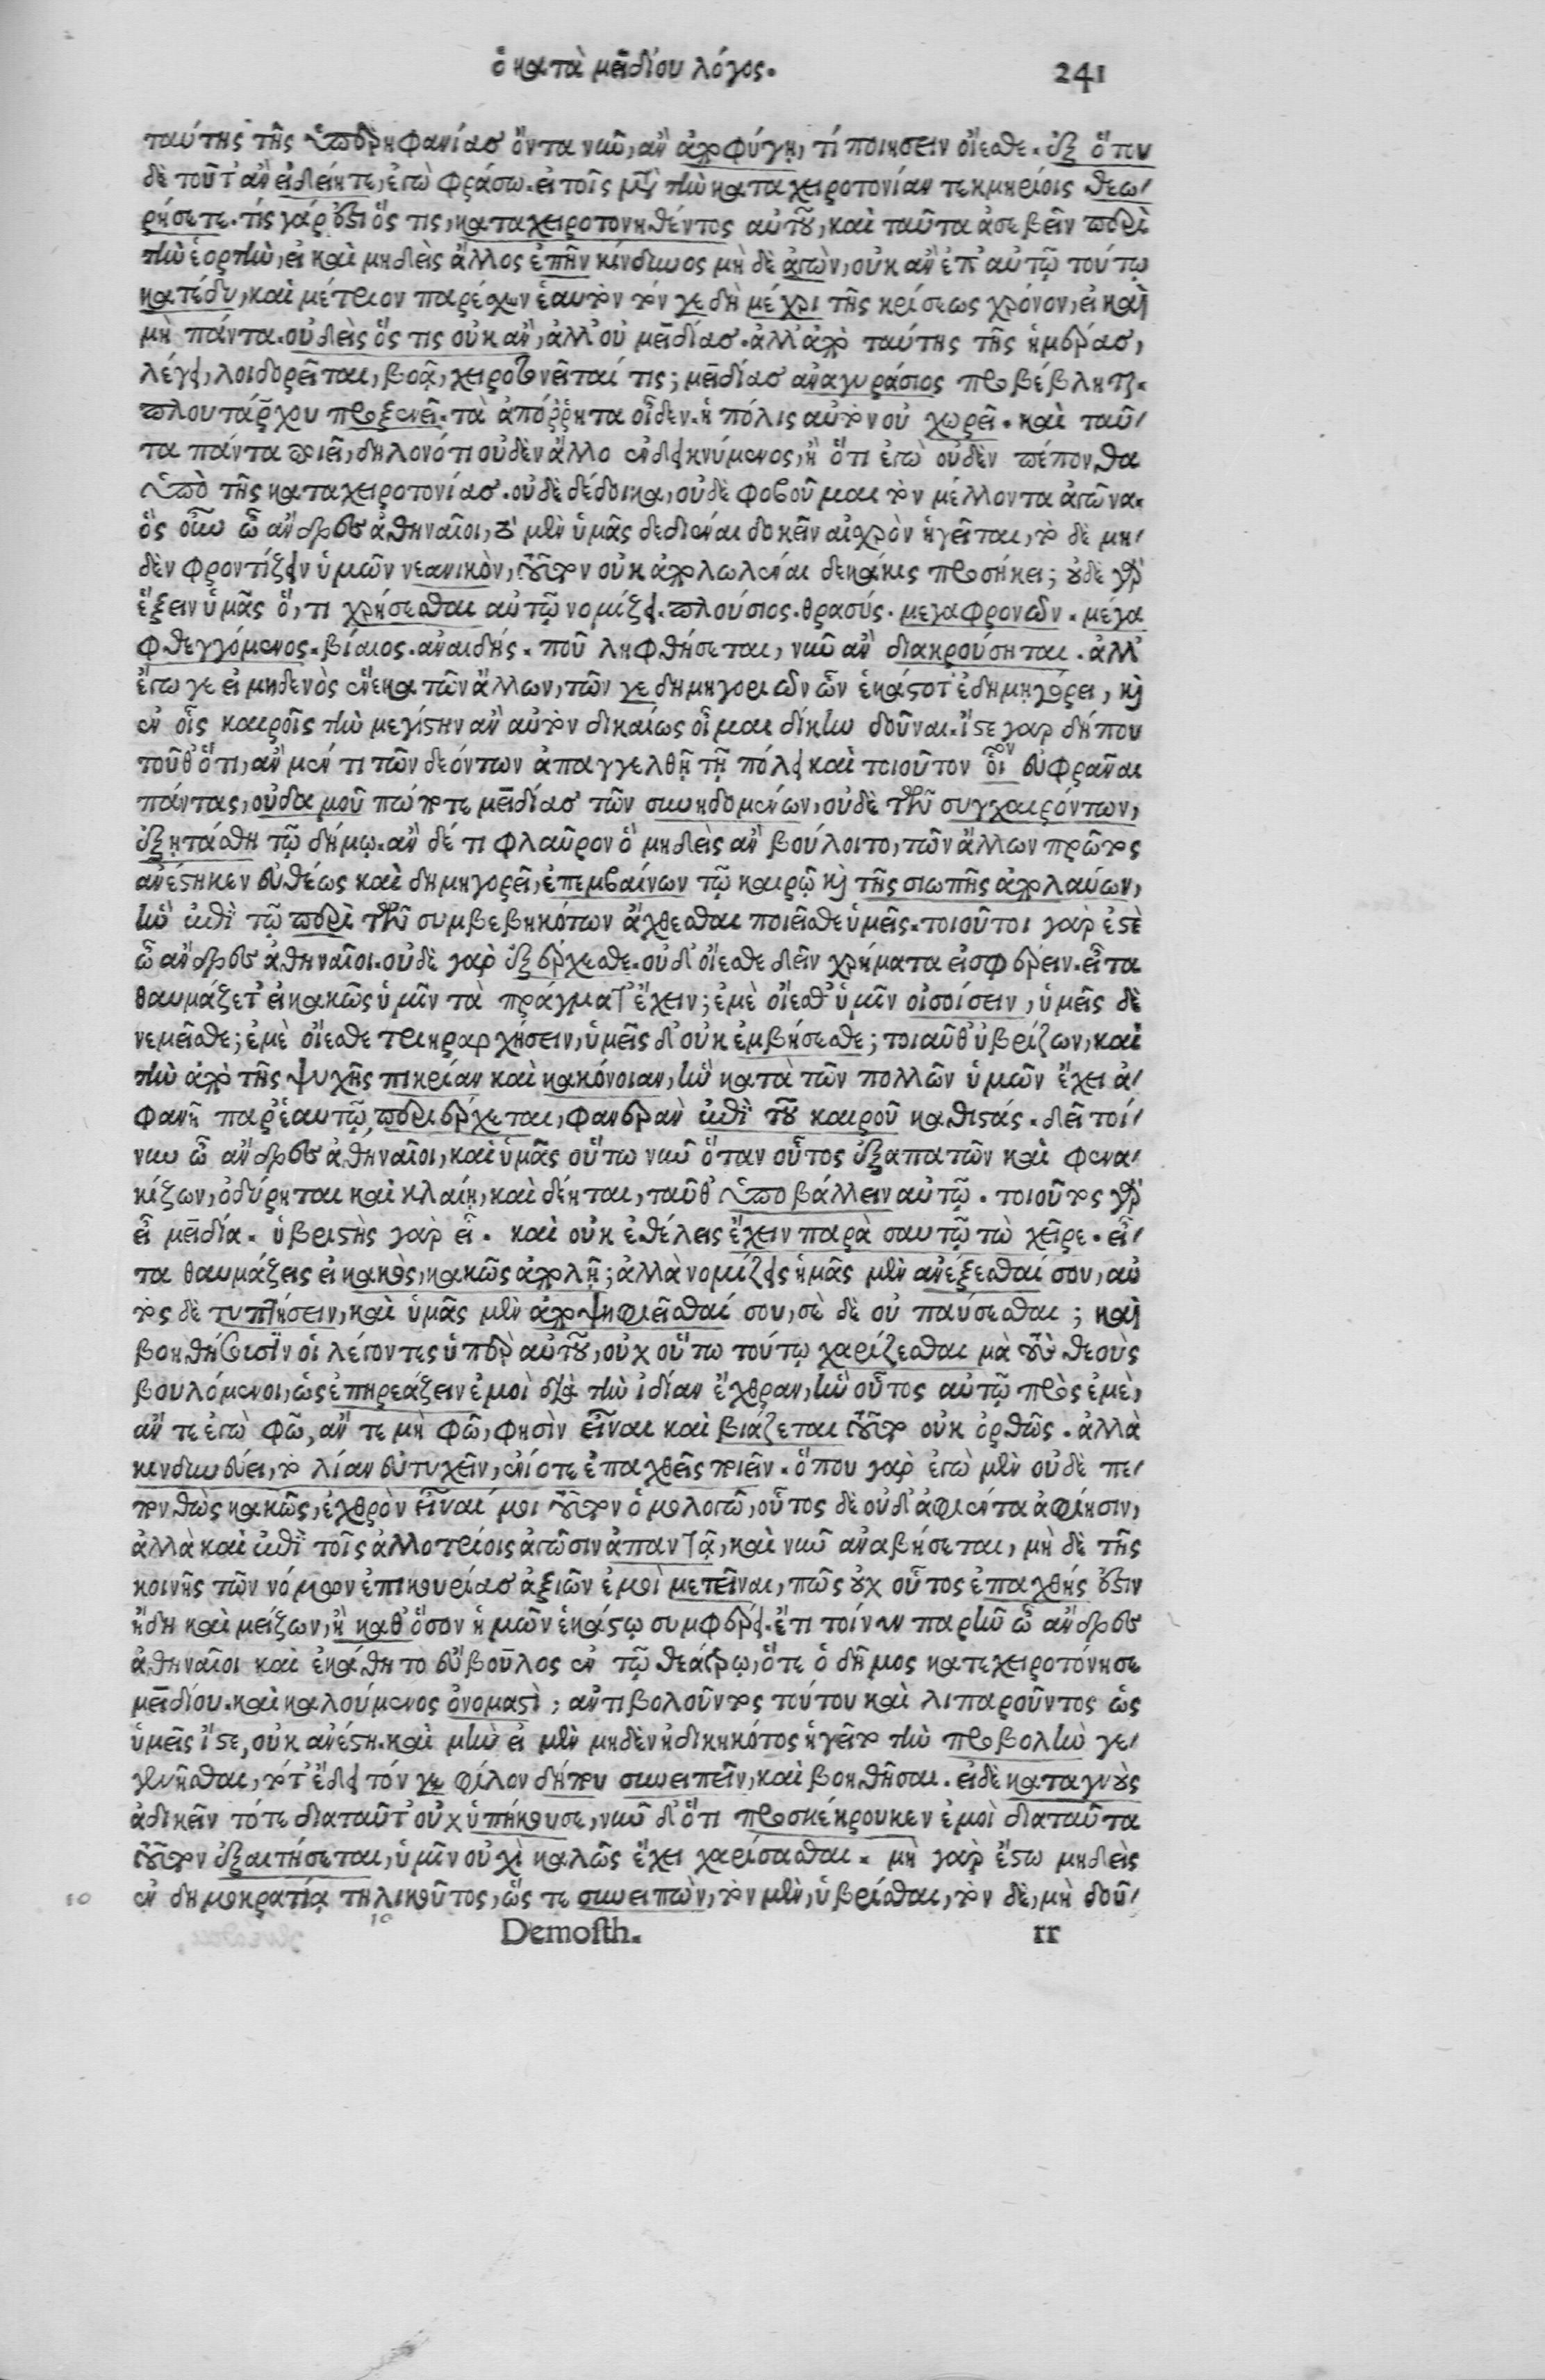 ὁ κατὰ μειδίου λόγος. 241
ταύτης τῆς ὑπερηφανίας ὄντα νῦν, ἂν ἀποφύγῃ, τί ποιήσειν οἴεσθε. ἐξ ὅτου
δὲ τοῦτ' ἂν εἰδείητε, ἐγὼ φράσω. εἰ τοῖς μετὰ τὴν καταχειροτονίαν τεκμηρίοις θεω-
ρήσετε. τίς γάρ ἐστι ὅς τις, καταχειροτονηθέντος αὐτοῦ, καὶ ταῦτα ἀσεβεῖν περὶ
τὴν ἑορτὴν, εἰ καὶ μηδεὶς ἄλλος ἐπῆν κίνδυνος μὴ δὲ ἀγὼν, οὐκ ἂν ἐπ' αὐτῷ τούτῳ
κατέδυ, καὶ μέτριον παρέσχεν ἑαυτὸν τόν γε δὴ μέχρι τῆς κρίσεως χρόνον, εἰ καὶ
μὴ πάντα. οὐδεὶς ὅς τις οὐκ ἂν, ἀλλ' οὐ μειδίας. ἀλλ' ἀπὸ ταύτης τῆς ἡμέρας,
λέγει, λοιδορεῖται, βοᾷ, χειροτονεῖταί τις; μειδίας ἀναγυράσιος προβέβληται.
πλουτάρχου προξενεῖ. τὰ ἀπόῤῥητα οἶδεν. ἡ πόλις αὐτὸν οὐ χωρεῖ. καὶ ταῦ-
τα πάντα ποιεῖ, δηλονότι οὐδὲν ἄλλο ἐνδεικνύμενος, ἢ ὅτι ἐγὼ οὐδὲν πέπονθα
ὑπὸ τῆς καταχειροτονίας. οὐδὲ δέδοικα, οὐδὲ φοβοῦμαι τὸν μέλλοντα ἀγῶνα.
ὃς οὖν ὦ ἄνδρες ἀθηναῖοι, τὸ μὲν ὑμᾶς δεδιέναι δοκεῖν αἰσχρὸν ἡγεῖται, τὸ δὲ μη-
δὲν φροντίζειν ὑμῶν νεανικὸν, τοῦτον οὐκ ἀπολωλέναι δεκάκις προσήκει; οὐδὲ γὰρ
ἕξειν ὑμᾶς ὅ, τι χρήσεσθαι αὐτῷ νομίζει. πλούσιος. θρασύς. μεγαφρονῶν. μέγα
φθεγγόμενος. βίαιος. ἀναιδής. ποῦ ληφθήσεται, νῦν ἂν διακρούσηται. ἀλλ'
ἔγωγε εἰ μηδενὸς ἕνεκα τῶν ἄλλων, τῶν γε δημηγοριῶν ὧν ἑκάστοτ' ἐδημηγόρει, καὶ
ἐν οἷς καιροῖς τὴν μεγίστην ἂν αὐτὸν δικαίως οἶμαι δίκην δοῦναι. ἴστε γαρ δήπου
τοῦθ' ὅτι, ἂν μέν τι τῶν δεόντων ἀπαγγελθῇ τῇ πόλει καὶ τοιοῦτον οἷον εὐφρᾶναι
πάντας, οὐδαμοῦ πώποτε μειδίας τῶν συνηδομένων, οὐδὲ τῶν συγχαιρόντων,
ἐξητάσθη τῷ δήμῳ. ἂν δέ τι φλαῦρον ὃ μηδεὶς ἂν βούλοιτο, τῶν ἄλλων πρῶτος
ἀνέστηκεν εὐθέως καὶ δημηγορεῖ, ἐπεμβαίνων τῷ καιρῷ καὶ τῆς σιωπῆς ἀπολαύων,
ἣν ἐπὶ τῷ περὶ τῶν συμβεβηκότων ἄχθεσθαι ποιεῖσθε ὑμεῖς. τοιοῦτοι γὰρ ἐστὲ
ὦ ἄνδρες ἀθηναῖοι. οὐδὲ γὰρ ἐξέρχεσθε. οὐδ' οἴεσθε δεῖν χρήματα εἰσφέρειν. εἶτα
θαυμάζετ' εἰ κακῶς ὑμῖν τὰ πράγματ' ἔχειν; ἐμὲ οἴεσθ' ὑμῖν οἰσοίσειν, ὑμεῖς δὲ
νεμεῖσθε; ἐμὲ οἴεσθε τριηραρχήσειν, ὑμεῖς δ' οὐκ ἐμβήσεσθε; τοιαῦθ' ὑβρίζων, καὶ
τὴν ἀπὸ τῆς ψυχῆς πικρίαν καὶ κακόνοιαν, ἣν κατὰ τῶν πολλῶν ὑμῶν ἔχει ἀ-
φανῆ παρ' ἑαυτῷ, περιέρχεται, φανερὰν ἐπὶ τοῦ καιροῦ καθιστάς. δεῖ τοί-
νυν ὦ ἄνδρες ἀθηναῖοι, καὶ ὑμᾶς οὕτω νῦν ὅταν οὗτος ἐξαπατῶν καὶ φενα-
κίζων, ὀδύρηται καὶ κλαίῃ, καὶ δέηται, ταῦθ' ὑποβάλλειν αὐτῷ. τοιοῦτος γὰρ
εἶ μειδία. ὑβριστὴς γὰρ εἶ. καὶ οὐκ ἐθέλεις ἔχειν παρὰ σαυτῷ τὼ χεῖρε. εἶ-
τα θαυμάζεις εἰ κακὸς, κακῶς ἀπολῇ; ἀλλὰ νομίζεις ἡμᾶς μὲν ἀνέξεσθαί σου, αὐ
τὸς δὲ τυπτήσειν, καὶ ὑμᾶς μὲν ἀποψηφιεῖσθαί σου, σὲ δὲ οὐ παύσεσθαι; καὶ
βοηθήσουσιν οἱ λέγοντες ὑπὲρ αὐτοῦ, οὐχ οὕτω τούτῳ χαρίζεσθαι μὰ τοὺς θεοὺς
βουλόμενοι, ὡς ἐπηρεάζειν ἐμοὶ διὰ τὴν ἰδίαν ἔχθραν, ἣν οὗτος αὐτῷ πρὸς ἐμὲ,
ἄν τε ἐγὼ φῶ, ἄν τε μὴ φῶ, φησὶν εἶναι καὶ βιάζεται τοῦτο οὐκ ὀρθῶς. ἀλλὰ
κινδυνεύει, τὸ λίαν εὐτυχεῖν, ἐνίοτε ἐπαχθεῖς ποιεῖν. ὅπου γὰρ ἐγὼ μὲν οὐδὲ πε-
πονθὼς κακῶς, ἐχθρὸν εἶναί μοι τοῦτον ὁμολογῶ, οὗτος δὲ οὐδ' ἀφιέντα ἀφίησιν,
ἀλλὰ καὶ ἐπὶ τοῖς ἀλλοτρίοις ἀγῶσιν ἀπαντᾷ, καὶ νῦν ἀναβήσεται, μὴ δὲ τῆς
κοινῆς τῶν νόμων ἐπικουρίας ἀξιῶν ἐμοὶ μετεῖναι, πῶς οὐχ οὗτος ἐπαχθής ἐστιν
ἤδη καὶ μείζων, ἢ καθ' ὅσον ἡμῶν ἑκάστῳ συμφέρει. ἔτι τοίνυν παρῆν ὦ ἄνδρες
ἀθηναῖοι καὶ ἐκάθητο εὔβουλος ἐν τῷ θεάτρῳ, ὅτε ὁ δῆμος κατεχειροτόνησε
μειδίου. καὶ καλούμενος ὀνομαστὶ; ἀντιβολοῦντος τούτου καὶ λιπαροῦντος ὡς
ὑμεῖς ἴστε, οὐκ ἀνέστη. καὶ μὴν εἰ μὲν μηδὲν ἠδικηκότος ἡγεῖτο τὴν προβολὴν γε-
γενῆσθαι, τότ' ἔδει τόν γε φίλον δήπου συνειπεῖν, καὶ βοηθῆσαι. εἰ δὲ καταγνοὺς
ἀδικεῖν τότε διαταῦτ' οὐχ ὑπήκουσε, νῦν δ' ὅτι προσκέκρουκεν ἐμοὶ διαταῦτα
τοῦτον ἐξαιτήσεται, ὑμῖν οὐχὶ καλῶς ἔχει χαρίσασθαι. μὴ γὰρ ἔστω μηδεὶς
ἐν δημοκρατίᾳ τηλικοῦτος, ὥς τε συνειπὼν, τὸν μὲν, ὑβρίσθαι, τὸν δὲ, μὴ δοῦ-
Demosth. rr